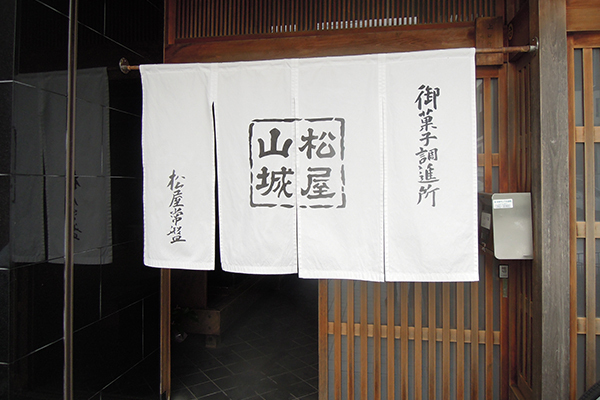 御菓子調進所
松屋
山城
松屋常盤